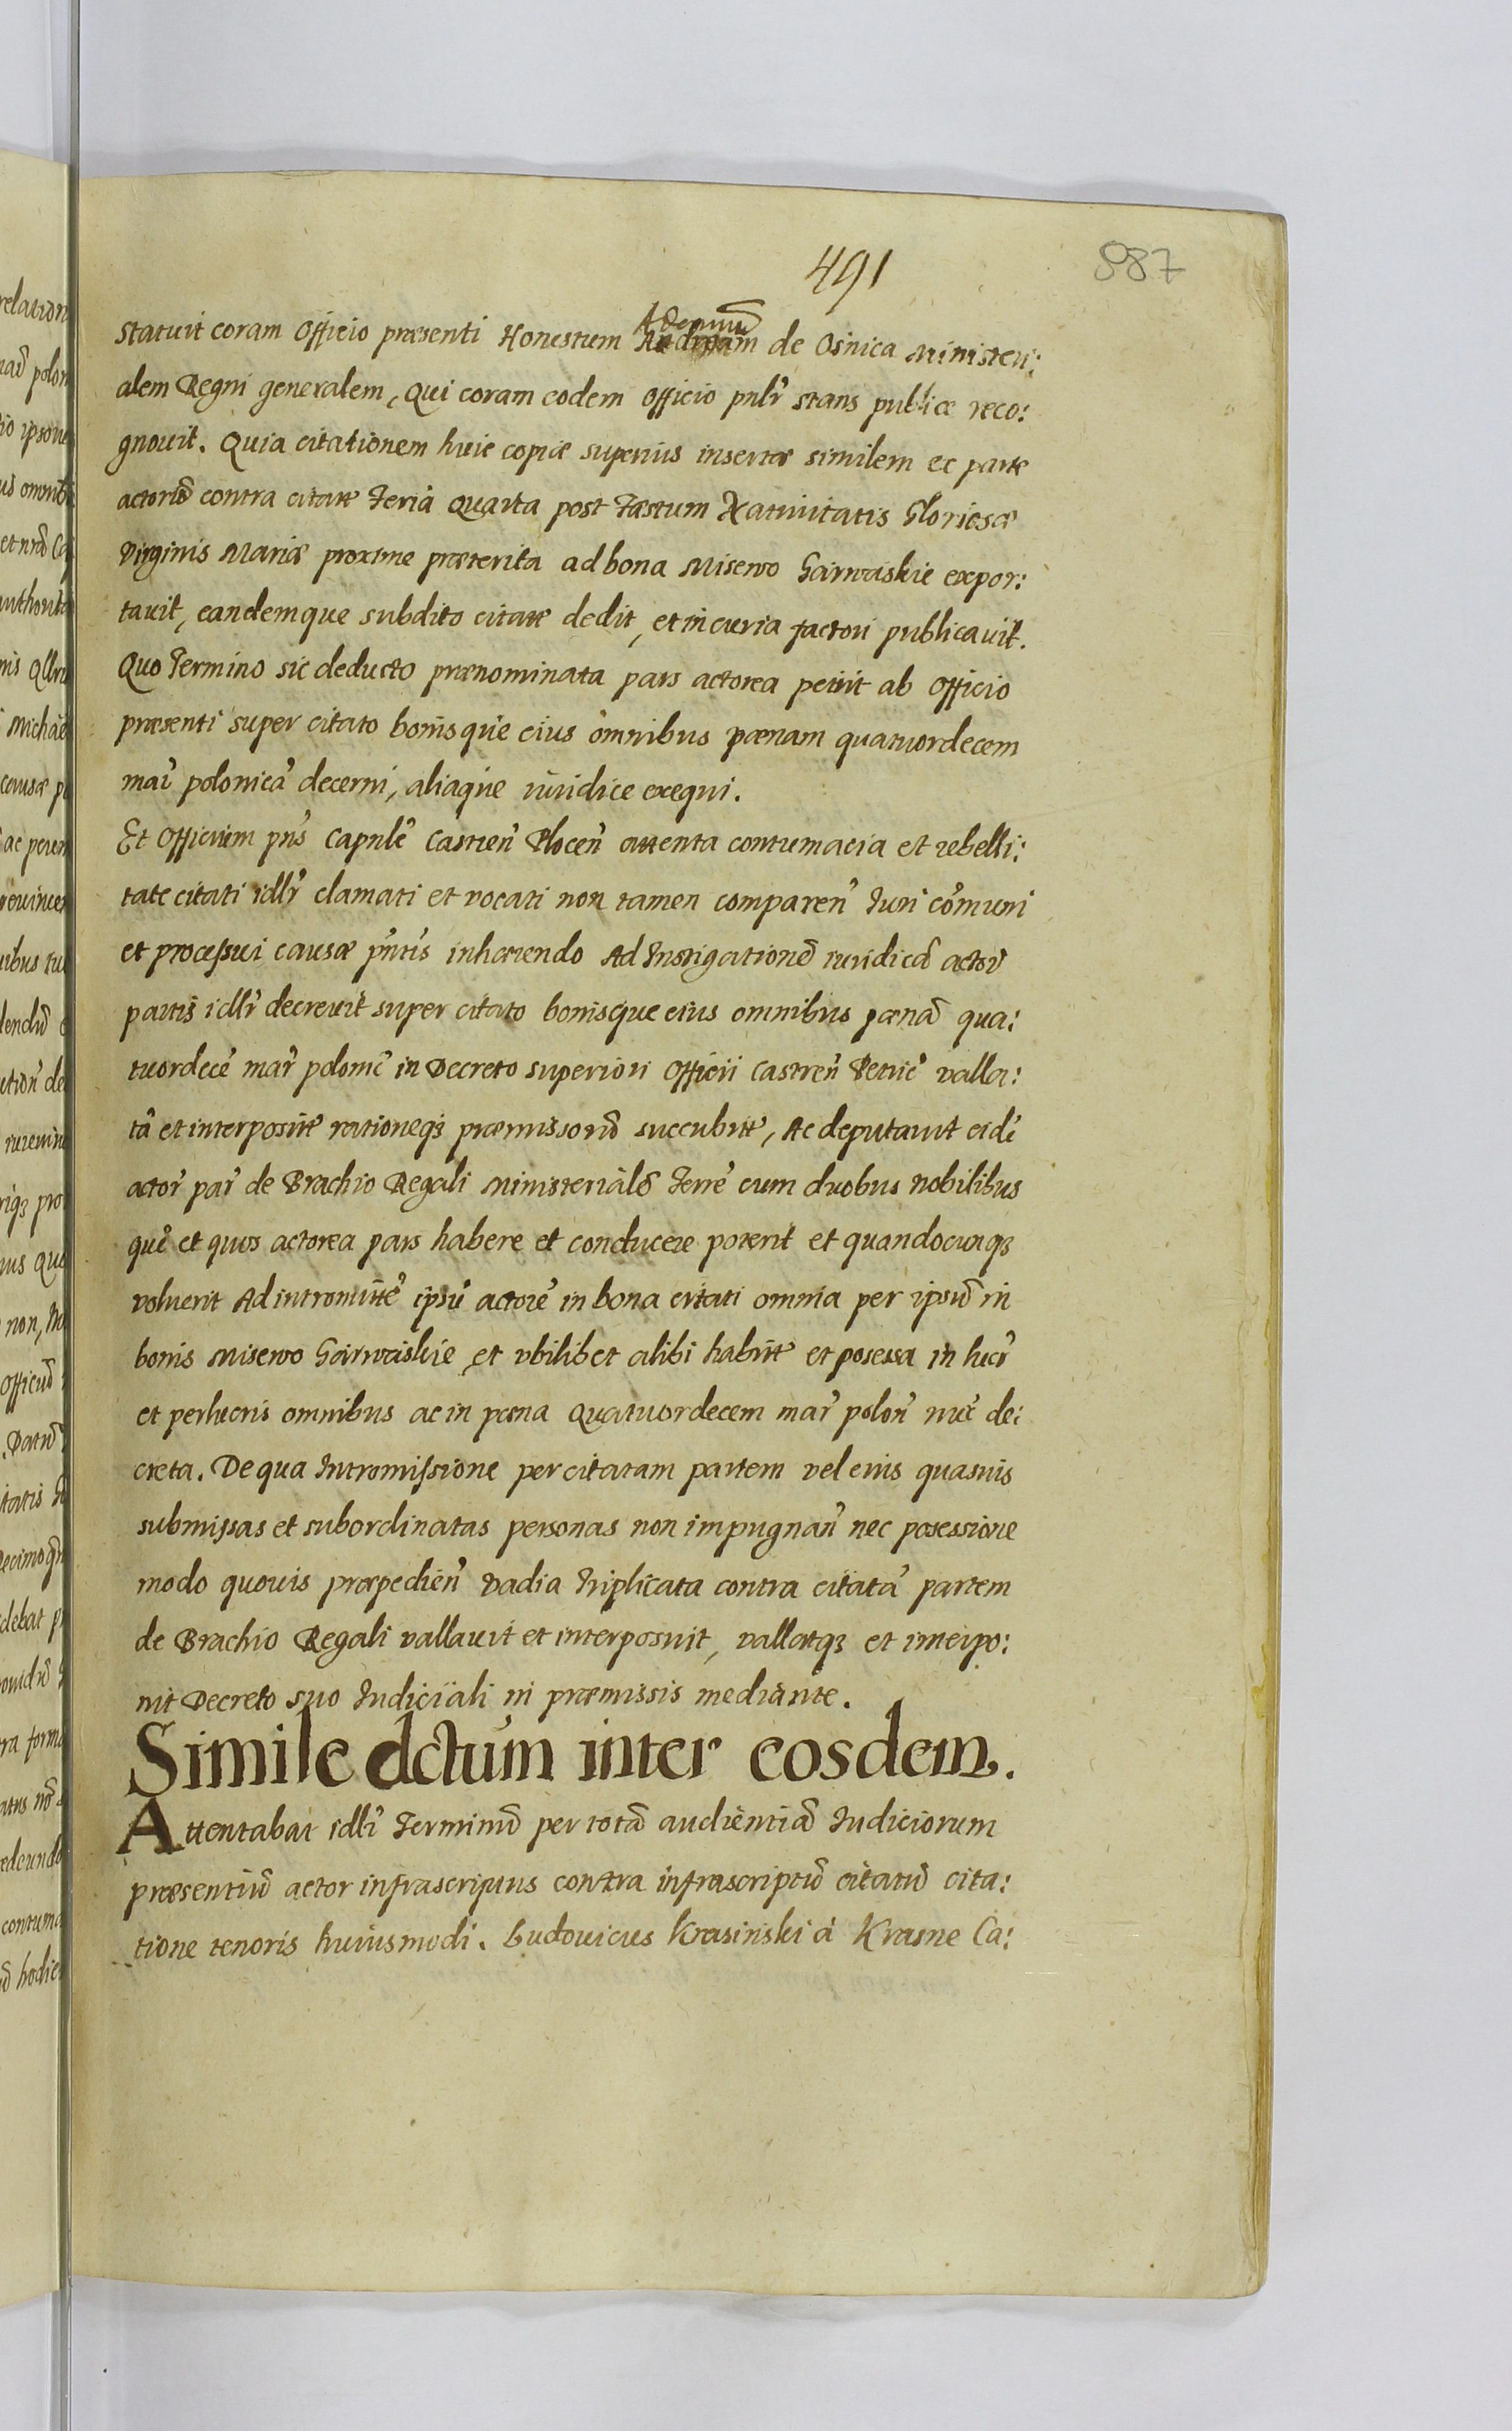 491
887
Statuit coram Officio præsenti Honestum Adamum de Osnica Ministeri:
alem Regni generalem, Qui coram eodem Officio pnłr stans publicæ reco:
gnouit. Quia citationem huic copiæ superius insertæ similem ex parte
contra citatæ Feria Quarta post Fæstum Natiuitatis Gloriosæ
Virginis Mariæ proxime præterita ad bona Misewo Garwaskie expor:
tauit, eandemque subdito citatæ dedit, et in curia factori publicauit.
Quo Termino sic deducto prænominata pars actorea petiit ab Officio
præsenti super citato bonisque eius omnibus pænam quatuordecem
mař polonicã decerni, aliaque iuridice exequi.
Et Officium pñs Capnłe Castreñ Płoceñ attenta contumacia et rebelli:
tate citati idłr clamati et vocati non tamen compareñ Iuri cõmuni
et processui causæ pñtis inhærendo Ad Instigationẽ iuridicã actoř
partis idłr decreuit super citato bonisque eius omnibus pænã qua:
tuordecẽ mař polonič in Decreto superiori Officii Castreñ valla:
tã et interpositæ rationeqȝ præmissorũ succubitæ, Ac deputauit eidẽ
actoř pař de Brachio Regali Ministerialẽ Terrẽ cum duobus nobilibus
quẽ et quos actorea pars habere et conducere poterit et quandocunqȝ
voluerit Ad intromittẽ ipsũ actorẽ in bona citati omnia per ipsũ in
bonis Misewo Garwaskie et vbilibet alibi habitæ et posessa in lucř
et perlucris omnibus ac in pæna Quatuordecem mař poloñ nũc de:
creta. De qua Intromissione per citatam partem vel eius quasuis
submissas et subordinatas personas non impugnañ nec posessione
modo quouis præpedieñ Vadia triplicata contra citatã partem
de Brachio Regali vallauit et interposuit, vallatqȝ et interpo:
nit Decreto suo Iudiciali in præmissis mediante.
Simile dctum inter eosdem.
Attentabat idłr Terminũ per totã audientiã Iudiciorum
præsentiũ actor infrascriptus contra infrascriptũ citatũ cita:
tione tenoris huiusmodi. Ludouicus Krasinski à Krasne Ca: